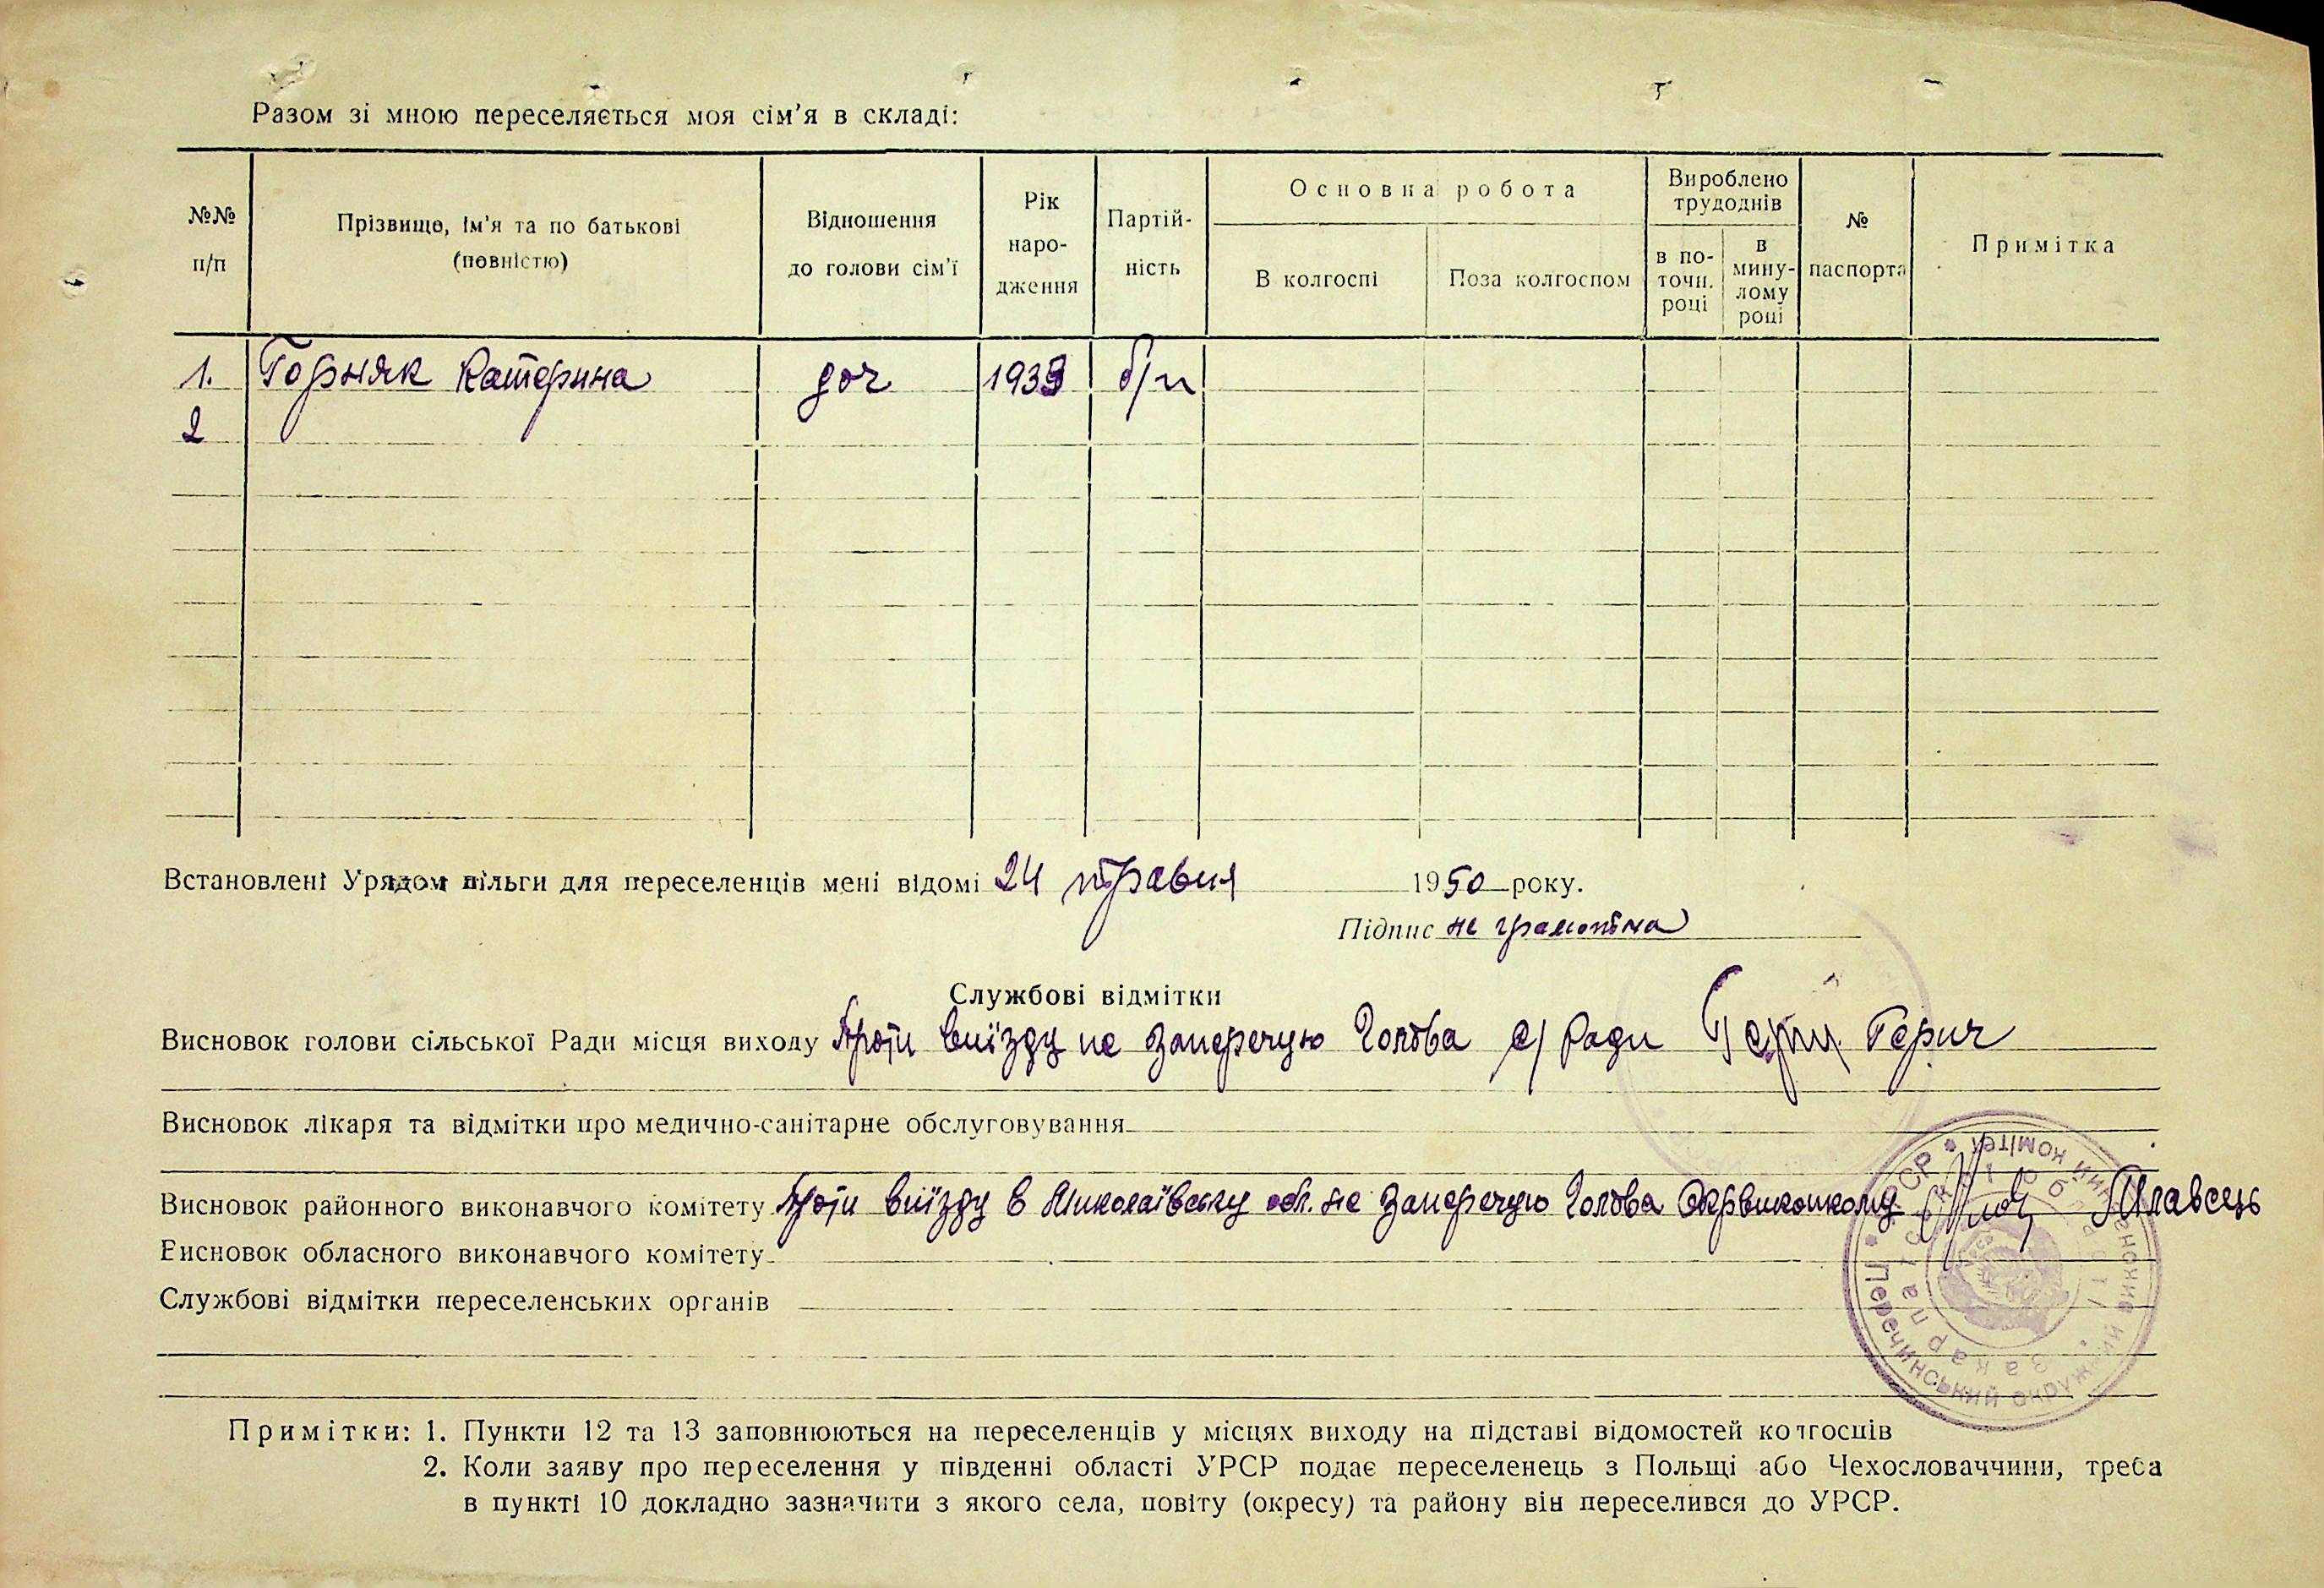 Разом зі мною переселяється моя сім'я в складі:
№№ п/п
Прізвище, ім'я та по батькові (повністю)
Відношення до голови сім'ї
Рік народження
Партійність
Основна робота
В колгоспі
Поза колгоспом
Вироблено трудоднів
в поточн. році
в минулому році
№ паспорта
Примітка
1. Горняк Катерина доч 1933 б/п
2
Встановлені Урядом пільги для переселенців мені відомі 24 травня 1950 року.
Підпис не грамотна
Службові відмітки
Висновок голови сільської Ради місця виходу Проти виїзду не заперечую Голова с/ Ради Герич
Висновок лікаря та відмітки про медично-санітарне обслуговування
Висновок районного виконавчого комітету Проти виїзду в Миколаївську обл. не заперечую Голова Окрвиконкому
Висновок обласного виконавчого комітету
Службові відмітки переселенських органів
Примітки: 1. Пункти 12 та 13 заповнюються на переселенців у місцях виходу на підставі відомостей колгоспів
2. Коли заяву про переселення у південні області УРСР подає переселенець з Польщі або Чехословаччини, треба
в пункті 10 докладно зазначити з якого села, повіту (окресу) та району він переселився до УРСР.